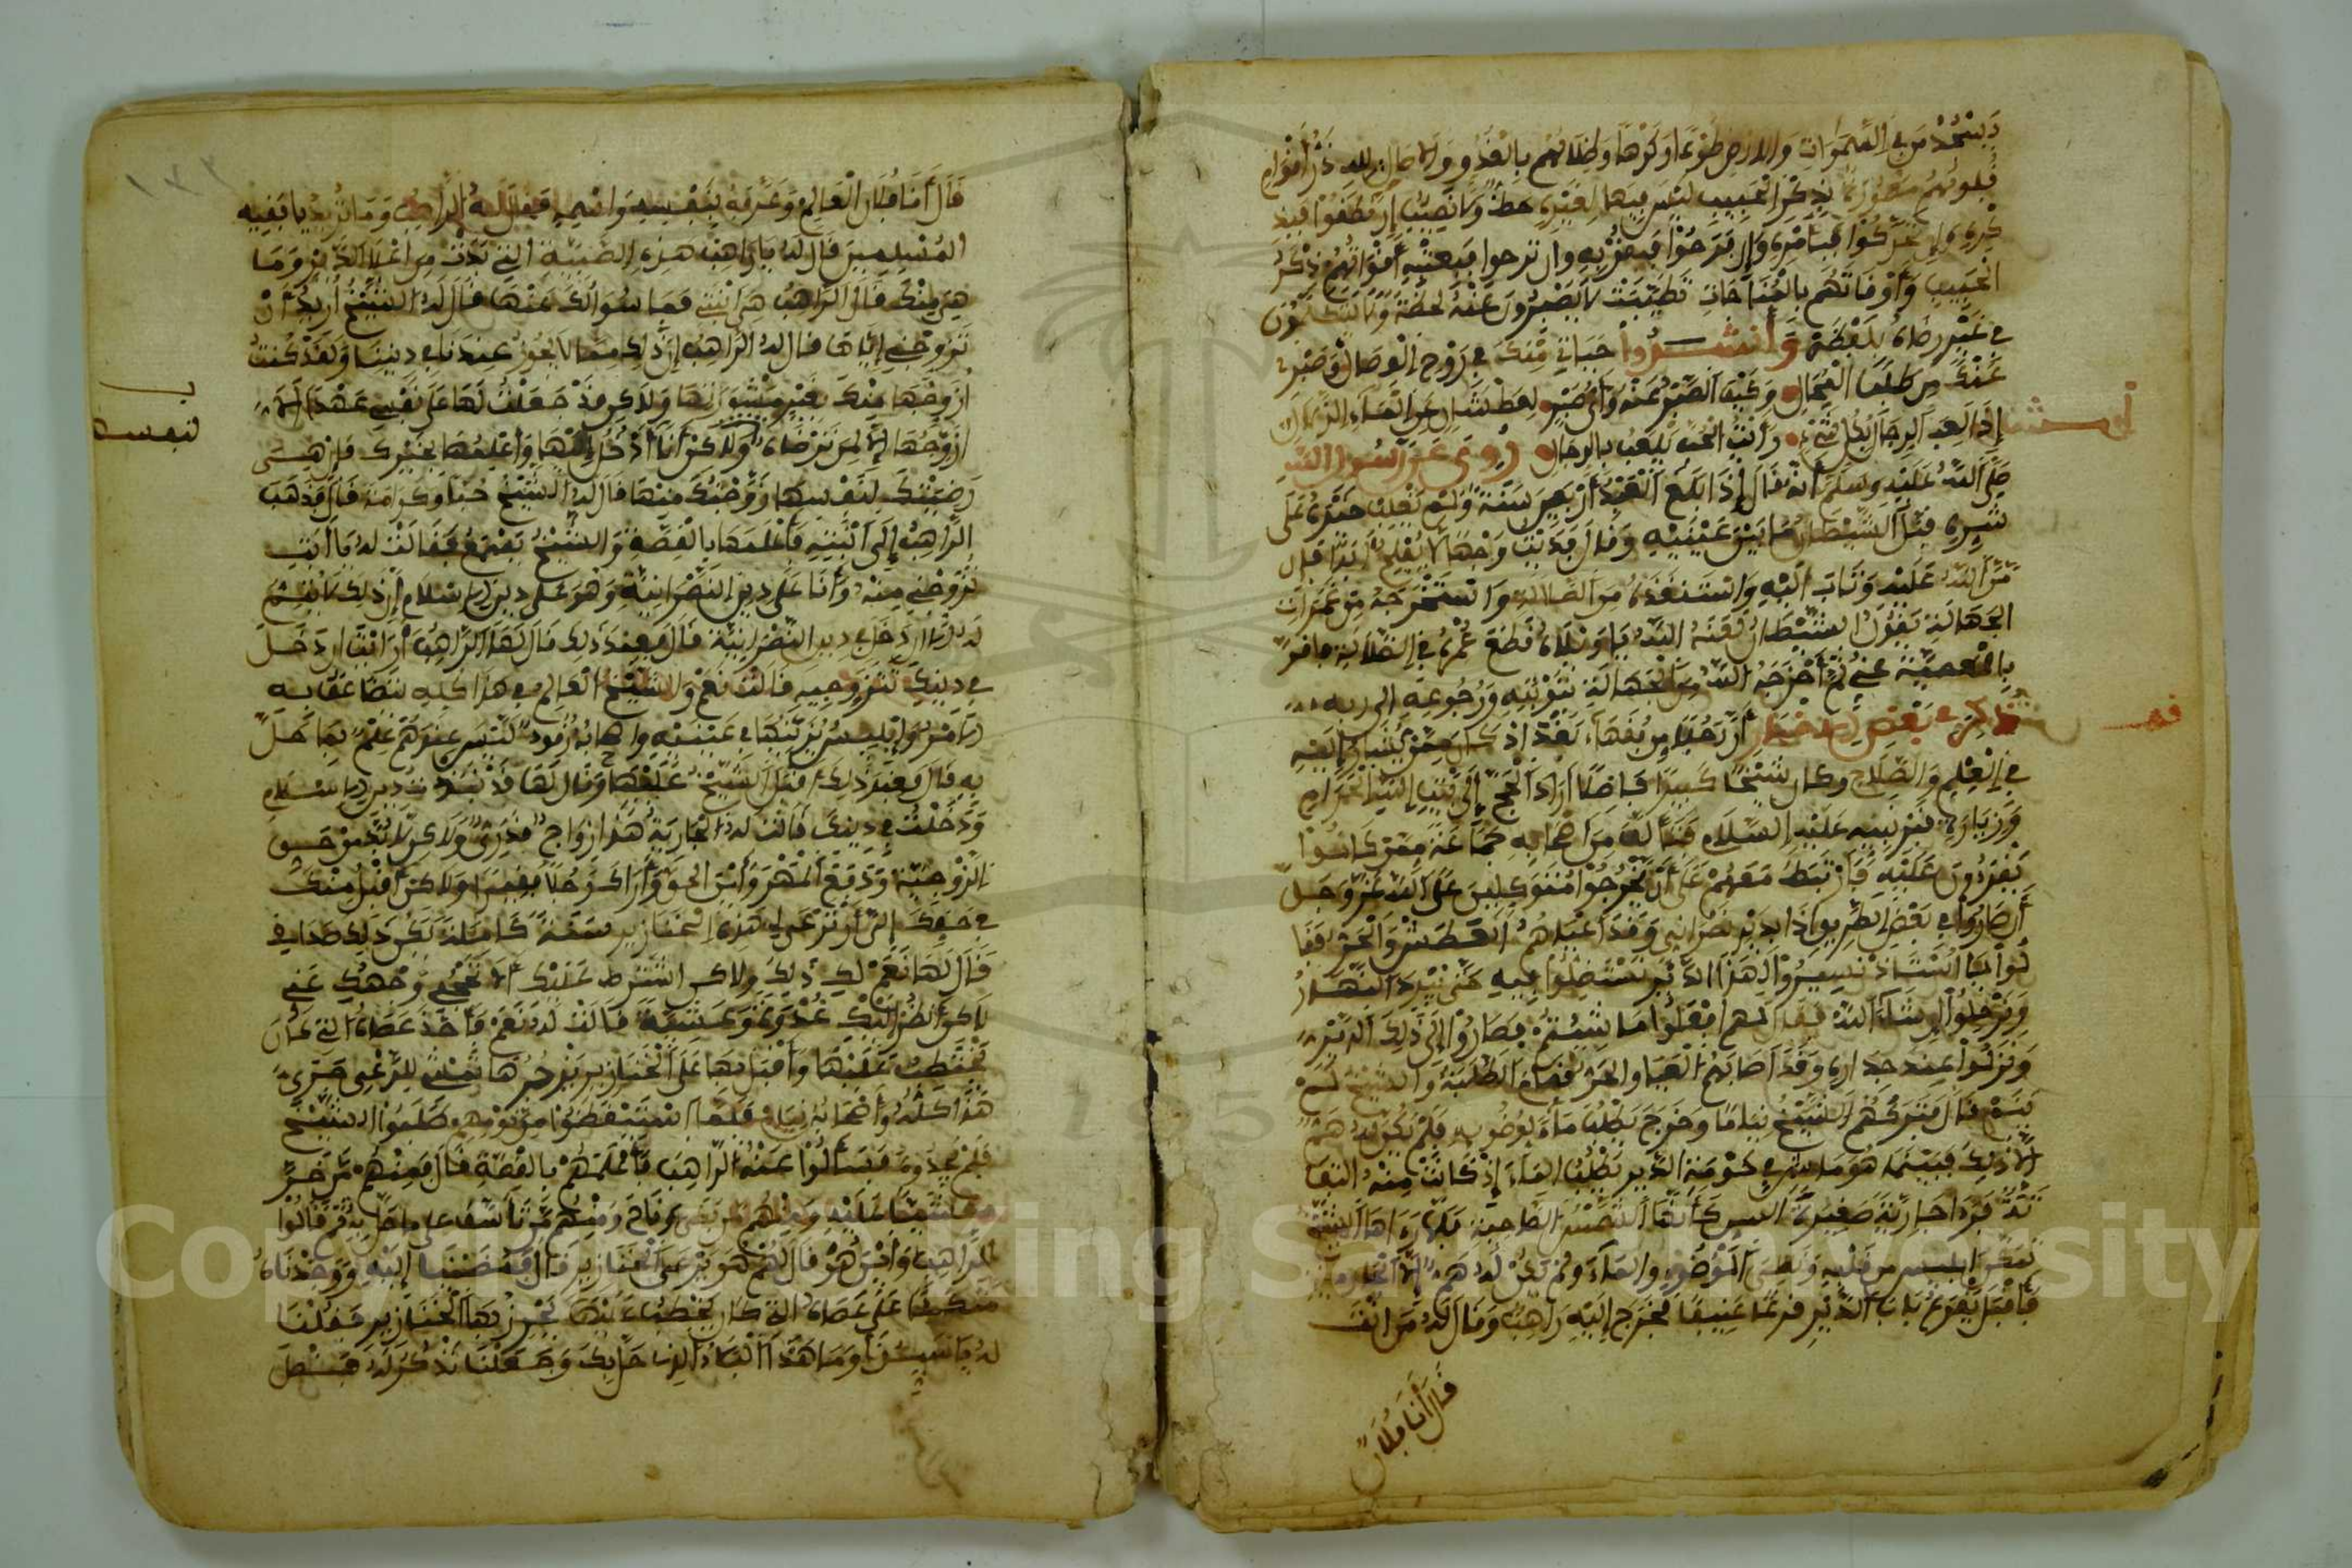 وَيَسْجُدُ مَن فِي السَّمَوَاتِ وَالأرض طَوْعًا وَكَرْهًا وَظِلَالُهُم بِالْغُدُوِّ وَالاصال لله ذَرُّ أَقْوَامٍ
قُلُوبُهُمْ مَعْمُورَة بِذِكْرِ الْحَبِيبِ لَيْسَ فِيهَا لِغَيْرِهِ حَظٌّ وَلَا نَصِيبٌ إِن نَطَقُوا فَبِذِ
كْرِهِ وَإِن تَحَرَّكُوا فَبِأَمْرِهِ وَإِن فَرِحُوا فَبِقُرْبِهِ وان ترحوا فَبِعَتْبِهِ أَقْوَاتُهُمْ ذِكْرُ
الْحَبِيبِ وَأَوْقَاتُهُم بِالْمُنَاجَاتِ تَطَيَّبَتْ لَا يَصْبِرُونَ عَنْهُ لَحْظَةً وَلَا يَتَكَلَّمُونَ
فِي غَيْرِ رِضَاهُ بِلَفْظَةٍ وَأَنْشَدُوا حَيَاتِي مِنْكَ فِي رَوْحِ الْوِصَالِ وَصَبْرِي
عَنْكَ مِن طَلَبِ الْمُحَالِ وَكَيْفَ الصَّبْرُ عَنْهُ وَأَيُّ صَبْرٍ لِعَطْشَانٍ عَنِ الْمَاءِ الزُّلَالِ
إِذَا لَعِبَ الرِّجَالُ بِكُلِّ شَيْءٍ رَأَيْتُ الْحُبَّ يَلْعَبُ بِالرِّجَالِ رُوِيَ عَن رَسُولِ اللَّهِ
صَلَّى اللَّهُ عَلَيْهِ وَسَلَّمَ أَنَّهُ قَالَ إِذَا بَلَغَ الْعَبْدُ أَرْبَعِينَ سَنَةً وَلَمْ يَغْلِبْ خَيْرُهُ عَلَى
شَرِّهِ قَبَّلَ الشَّيْطَانُ مَا بَيْنَ عَيْنَيْهِ وَقَالَ فَدَيْتُ وَجْهًا لَا يُفْلِحُ أَبَدًا فإن
مَنَّ اللَّهُ عَلَيْهِ وَتَابَ إِلَيْهِ وَاسْتَنْقَذَهُ مِنَ الضَّلَالَةِ وَاسْتَخْرَجَهُ مِن غَمَرَاتِ
الْجَهَالَةِ يَقُولُ الشَّيْطَانُ لَعَنَهُ اللَّهُ يَا وَيْلَاهُ قَطَعَ عُمْرَهُ فِي الضَّلَالَةِ واقر
بِالْمَعْصِيَةِ عَيْنِي ثُمَّ أَخْرَجَهُ اللَّهُ مِنَ الْجَهَالَةِ بِتَوْبَتِهِ وَرُجُوعِهِ إلى ربه
ذُكِرَ فِي بَعْضِ الاخْبَارِ أَنَّ رَجُلًا مِن فُقَهَاءِ بَغْدَاد كَانَ مِمَّن يُشَارُ إِلَيْهِ
فِي الْعِلْمِ وَالصَّلَاحِ وكان شَيْخًا كَبِيرًا فَاضِلًا أَرَادَ الْحَجَّ إِلَى بَيْتِ اللَّهِ الْحَرَامِ
وَزِيَارَة قَبْرِ نَبِيِّهِ عَلَيْهِ السَّلَام فَتَأَلَّفَ مِنْ أَصْحَابِهِ جَمَاعَةً مِمَّن كَانُوا
يَقْرَءُونَ عَلَيْهِ فَارْتَبَطَ مَعَهُمْ عَلَى أَن يَخْرُجُوا مُتَوَكِّلِينَ عَلَى اللَّهِ عَزَّ وَجَلَّ
أَن صَارُوا فِي بَعْضِ الطَّرِيقِ إِذَا بِدَيْرِ نَصْرَانِي وَقَدْ أَعْيَاهُمُ الْعَطَشُ وَالْحَرُّ فَقَا
لُوا يَا أُسْتَاذ نَسِيرُ إِلَى هَذَا الدَّيْرِ نَسْتَظِلُّوا فِيهِ حَتَّى يَبْرُدَ النَّهَارُ
وَنَرْحَلُوا إِن شَاءَ اللَّهُ فَقَالَ لَهُمُ افْعَلُوا مَا شِئْتُمْ فَصَارُوا إِلَى ذَلِكَ الدَّيْرِ
وَنَزَلُوا عِنْدَ جِدَارِهِ وَقَدْ أَصَابَهُمُ الْعَيَا والحَرُّ فَنَامَ الطَّلَبَةُ وَالشَّيْخُ لَمْ
يَنَمْ قَالَ فَتَرَكَهُمُ الشَّيْخُ نِيَامًا وَخَرَجَ يَطْلُبُ مَاءً لِوُضُوءِهِ فَلَمْ يَكُن لَهُ هَمٌّ
إلا ذَلِكَ فَبَيْنَمَا هُوَ مَاشٍ فِي حَوْمَةِ الدَّيْرِ يَطْلُبُ الْمَاءَ إِذْ كَانَتْ مِنْهُ الْتِفَا
تَةٌ فَرَأَى جَارِيَةً صَغِيرَةَ السِّنِّ كَأَنَّهَا الشَّمْسُ الضَّاحِيَة فَلَمَّا رَءَاهَا الشَّيْخُ
تمكن ابليس من قلبه وَنَسِيَ الْوُضُوءَ وَالْمَاءَ وَلَمْ يَكُن لَهُ هَمٌّ إِلَّا الْجَارِيَة
فَأَقْبَلَ يَقْرَعُ بَابَ الدَّيْرِ قَرْعًا عَنِيفًا فَخَرَجَ إِلَيْهِ رَاهِبٌ وَقَالَ لَهُ مَن أَنْتَ
قَالَ أَنَا فُلَانٌ
قَالَ أَنَا فُلَان الْعَالِمُ وَعَرَّفَهُ بِنَفْسِهِ وَاسْمِهِ فَقَالَ لَهُ الرَّاهِبُ وَمَا تُرِيدُ يَا فَقِيه
الْمُسْلِمِينَ قَالَ لَهُ يَا رَاهِبُ هَذِهِ الصَّبِيَّة الَّتِي بَدَتْ مِن أَعْلَا الدَّيْرِ وَمَا
هِيَ مِنْكَ قَالَ الرَّاهِبُ هِيَ ابْنَتِي فَمَا سُؤَالُكَ عَنْهَا قَالَ لَهُ الشَّيْخُ أُرِيدُ أَنْ
تُزَوِّجَنِي إِيَّاهَا قَالَ لَهُ الرَّاهِبُ إِنَّ ذَلِكَ مِمَّا لَا يَجُوزُ عِنْدَنَا فِي دِينِنَا وَلَقَدْ كُنْتُ
أُزَوِّجُهَا مِنْكَ بِغَيْرِ مَشْوَرَتِهَا وَلَاكِن قَدْ جَعَلْتُ لَهَا عَلَى نَفْسِي عَهْدًا أَلَّا
أُزَوِّجَهَا إِلَّا لِمَن تَرْضَاهُ وَلَاكِنْ أَنَا أَدْخُلُ إِلَيْهَا وَأُعْلِمُهَا بِخَبَرِكَ فَإِنْ هِيَ
رَضِيَتْكَ لِنَفْسِهَا زَوَّجْتُكَ مِنْهَا قَالَ لَهُ الشَّيْخُ حُبًّا وَكَرَامَةً قَالَ فَذَهَبَ
الرَّاهِبُ إِلَى ابْنَتِهِ فَأَعْلَمَهَا بِالْقِصَّةِ وَالشَّيْخُ يَسْمَعُ فَقَالَتْ لَهُ يَا أَبَتِ
تُزَوِّجُنِي مِنْهُ وَأَنَا عَلَى دِينِ النَّصْرَانِيَّةِ وَهُوَ عَلَى دِينِ الاسْلَامِ إِنَّ ذَلِكَ لَا يَتِمُّ
لَهُ إِلَّا إِن دَخَلَ فِي دِينِ النَّصْرَانِيَّةِ قَالَ فَعِنْدَ ذَلِكَ قَالَ لَهَا الرَّاهِبُ أَرَأَيْتِ إِن دَخَلَ
فِي دِينِكِ تَتَزَوَّجِيهِ قَالَتْ نَعَمْ وَالشَّيْخُ الْعَالِمُ فِي هَذَا كُلِّهِ
بِهِ قَالَ فَعِنْدَ ذَلِكَ أَقْبَلَ الشَّيْخُ عَلَيْهَا وَقَالَ لَهَا قَدْ نَبَذْتُ دِينَ الاسْلَام
وَدَخَلْتُ فِي دِينِكِ قَالَتْ لَهُ الْجَارِيَةُ هَذَا زواج قدري وَلَاكِن لَا بُدَّ مِنْ حَق
الزَّوْجِيَّةِ وَدَفْعِ الْمَهْرِ وَأَيْنَ الحَقُّ وَأَرَاكَ رَجُلًا فَقِيرًا وَلَاكِن أَقْبَلُ مِنْكَ
فِي حَقِّكَ أَن تَرْعَى لِي هَذِهِ الْخَنَازِيرَ سَنَةً كَامِلَةً يَكُنْ ذَلِكَ صَدَاقِي
قَالَ لَهَا نَعَمْ لَكِ ذَلِكَ وَلاكن أَشْتَرِط عَلَيْكِ أَلَّا تَحْجُبِي وَجْهَكِ عَنِّي
لاكون انظُرُ إِلَيْكِ غُدْوَةً وَعَشِيَّةً قَالَتْ لَهُ نَعَمْ فَأَخَذَ عَصَاهُ الَّتِي كَانَ
يَخْطُبُ عَلَيْهَا وَأَقْبَلَ بِهَا عَلَى الْخَنَازِيرِ يَزْجُرُهَا تَمْشِي لِلْمَرْعَى جَرَى
هَذَا كُلُّهُ وَأَصْحَابُهُ نِيَام فَلَمَّا اسْتَيْقَظُوا مِن نَوْمِهِم طَلَبُوا الشَّيْخَ
فَلَمْ يَجِدُوهُ فَسَأَلُوا عَنْهُ الرَّاهِبَ فَأَعْلَمَهُمْ بِالْقِصَّةِ قَالَ فَمِنْهُمْ مَن خَرَّ
مَغْشِيًّا عَلَيْهِ وَمِنْهُمْ مَن بَكَى وَنَاحَ وَمِنْهُمْ مَن تَأَسَّفَ عَلَى مَا حَلَّ بِهِ ثُمَّ قَالُوا
لِلرَّاهِبِ وَأَيْنَ هُوَ قَالَ لَهُمْ هُوَ يَرْعَى الْخَنَازِيرَ قَالَ فَمَضَيْنَا إِلَيْهِ وَوَجَدْنَاهُ
مُتَّكِئًا عَلَى عَصَاهُ الَّتِي كَانَ يَخْطُبُ عَلَيْهَا يَزْجُرُ بِهَا الْخَنَازِيرَ فَقُلْنَا
لَهُ يَا سَيِّدَنَا وَمَا هَذَا الْبَلَاءُ الَّذِي حَلَّ بِكَ وَجَعَلْنَا نَذْكُرُ لَهُ فَضْلَ